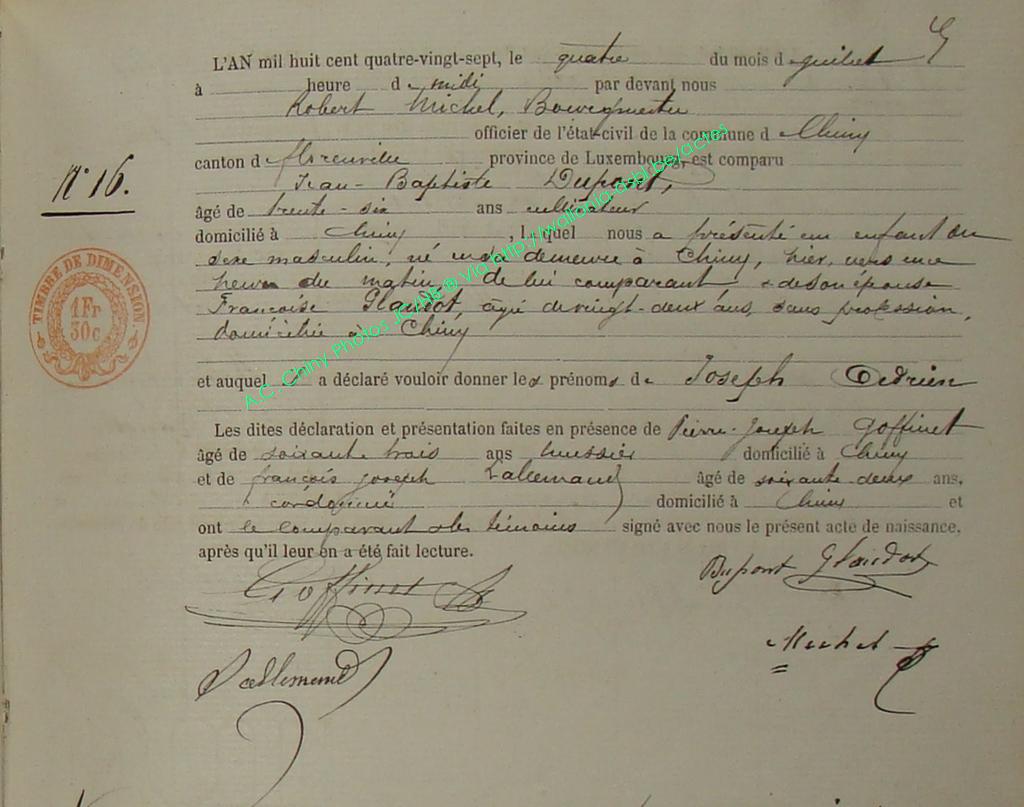 L'AN mil huit cent quatre-vingt-sept, le quatre du mois d guillet
à heure de midi par devant nous
Robert Michel, Bourgmestre
officier de l'état-civil de la commune d Chiny
canton d florenville province de Luxembourg, est comparu
N° 16.
Jean-Baptiste Dupont,
âgé de trente-six ans cultivateur
domicilié à Chiny, lequel nous a présenté un enfant du
sexe masculin, né en sa demeure à Chiny, hier, vers une
heure du matin, de lui comparant, & de son épouse
Françoise Glaudot, agée de vingt-deux ans, sans profession,
domiciliée à Chiny
TIMBRE DE DIMENSION
1Fr
30c
et auquel a déclaré vouloir donner les prénoms de Joseph Adrien
Les dites déclaration et présentation faites en présence de Pierre-Joseph Goffinet
âgé de soixante trois ans huissier domicilié à Chiny
et de françois joseph Lallemand âgé de soixante deux ans,
cordonnier domicilié à Chiny et
ont le comparant & les témoins signé avec nous le présent acte de naissance,
après qu'il leur en a été fait lecture.
Goffinet
Dupont Glaudot
Michel
Lallemand
A.C. Chiny Photos JCHS © Via http://wallonia-asbl.be/actes